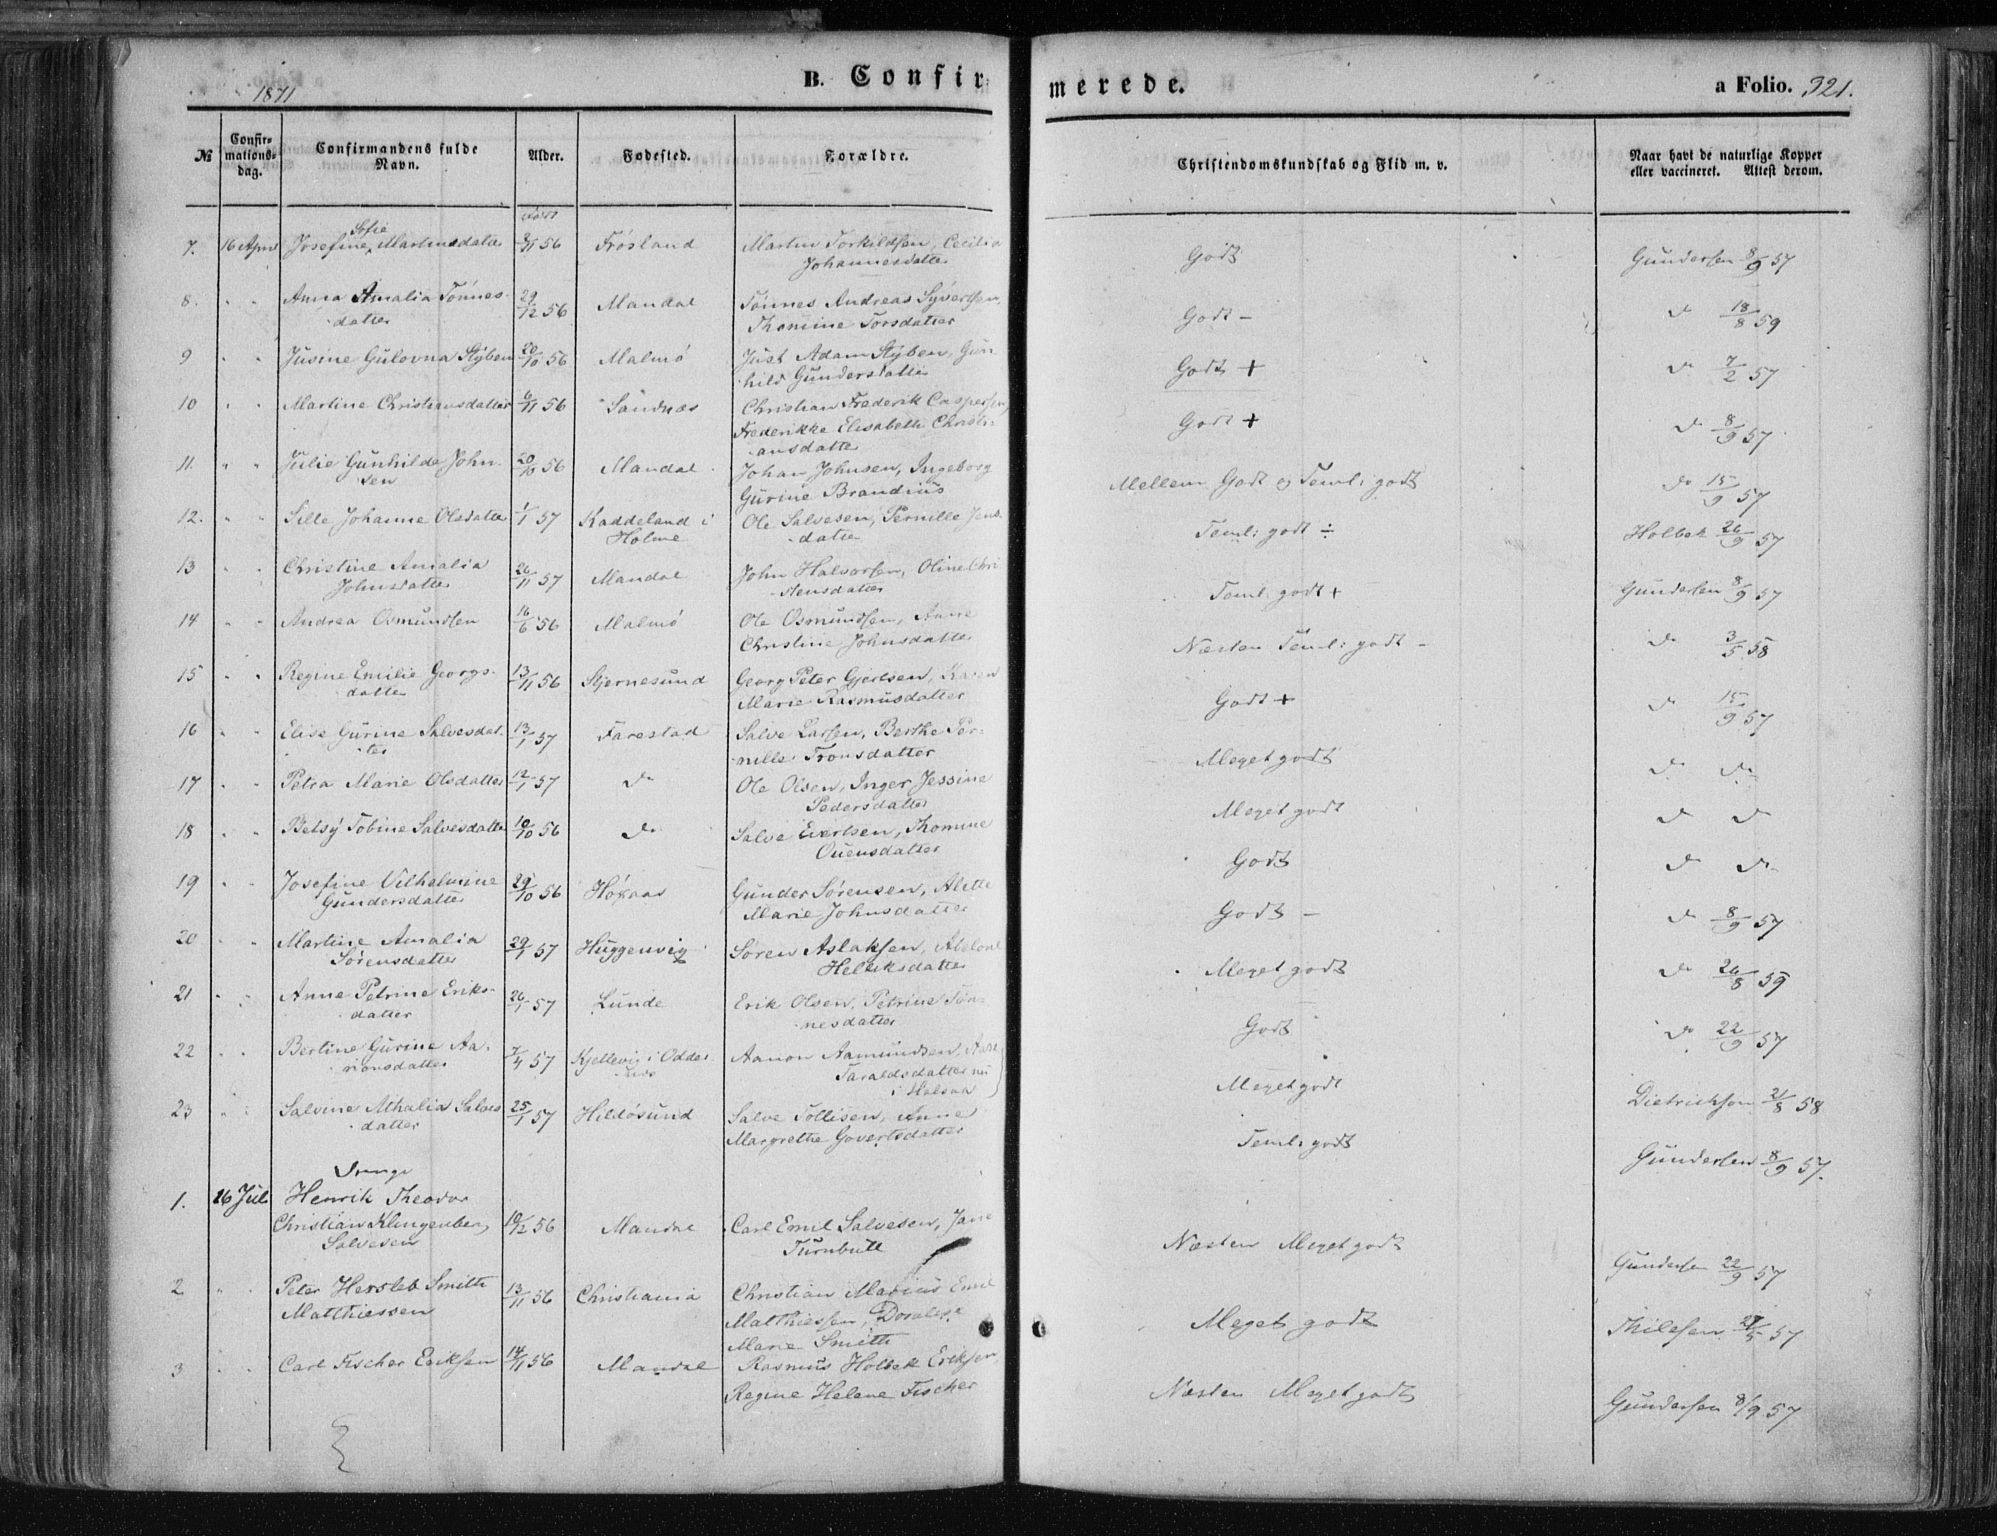 1871
B. Confirmerede.
a Folio. 321.
№ Confirmations-dag. Confirmandens fulde Navn. Alder. Fødested. Forældre. Christendomskundskab og Flid m. v. Naar havt de naturlige Kopper eller vaccineret. Attest derom.
født
Sofie
7. 16 April Josefine Martinsdatter 56 Frøsland Martin Torkildsen, Cecilia Godt Gundersen 8/9 57
Johannesdatter
8. " " Anna Amalia Tønnes- 29/12 56 Mandal Tønnes Andreas Syvertsen, Godt - do 18/8 59
datter Thomine Torsdatter
9 " " Jusine Gulovna Styben 20/10 56 Malmø Just Adam Styben, Gun- Godt + do 7/2 57
hild Gundersdatter
10 " " Martine Christiansdatter 6/11 56 Sandnæs Christian Frederik Caspersen, Godt + do 8/9 57
Frederikke Elisabeth Christi-
ansdatter
11. " " Julie Gunhilde John- 20/10 56 Mandal Johan Johnsen, Ingeborg Mellem Godt og Teml: godt do 15/9 57
sen Gurine Brandius
12. " " Sille Johanne Olsdatter 1/1 57 Kaddeland i Ole Salvesen, Pernille Jens- Teml: godt ÷ Holbek 26/9 57
Holme datter
13 " " Christine Amalia 26/11 57 Mandal John Halvorsen, Oline Chri- Teml: godt + Gundersen 8/9 57
Johnsdatter stensdatter
14 " " Andrea Osmundsen 16/6 56 Malmø Ole Osmundsen, Anne Næsten Teml: godt - do 3/5 58
Christine Johnsdatter
15 " " Regine Emilie Georgs- 13/11 56 Stjernesund Georg Peter Gjertsen, Karen Godt + do 15/9 57
datter Marie Rasmusdatter
16 " " Elise Gurine Salvesdat- 13/1 57 Farestad Salve Larsen, Berthe Per- Meget godt do do
ter nille Tronsdatter
17 " " Petra Marie Olsdatter 12/1 57 do Ole Olsen, Inger Jessine Meget godt do do
Pedersdatter
18 " " Betsy Tobine Salvesdatter 10/10 56 do Salve Evertsen, Thomine Godt do do
Ouensdatter
19 " " Josefine Vilhelmine 29/10 56 Høxaas Gunder Sørensen, Alette Godt - do 8/9 57
Gundersdatter Marie Johnsdatter
20 " " Martine Amalia 29/1 57 Huggenvig Søren Aslaksen, Abelone Meget godt do 26/8 59
Sørensdatter Helleksdatter
21 " " Anne Petrine Eriks- 26/1 57 Lunde Erik Olsen, Petrine Tøn- Godt do 22/9 57
datter nesdatter
22 " " Bertine Gurine Aa- 7/4 57 Kjellevig i Odder- Aanon Aamundsen, Aase Meget godt Dietrichson 2/8 58
nonsdatter næs Taraldsdatter nu
i Halsaa
23 " " Salvine Athalia Salves- 25/1 57 Hildøsund Salve Tollisen, Anne Teml: godt Gundersen 8/9 57.
datter Margrethe Govertsdatter
Drenge
1. 16 Juli Henrik Theodor
Christian Klingenberg 10/12 56 Mandal Carl Emil Salvesen, Jane Næsten Meget godt Gundersen 22/9 57
Salvesen Turnbull
2 " " Peter Hersleb Smith 13/11 56 Christiania Christian Marius Emil Meget godt Thilesen 57
Matthiessen Matthiessen,
Marie Smith
3 " " Carl Fischer Eriksen 14/11 56 Mandal Rasmus Holbek Eriksen, Næsten Meget godt Gundersen 8/9 57
Regine Helene Fischer